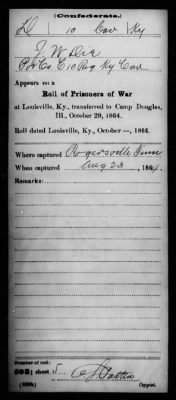 (Confederate.)
D 10 Cav Ky
J. W. Dix
Pvt Co. C 10 Reg. Ky Cav
Appears on a
Roll of Prisoners of War
at Louisville, Ky., transferred to Camp Douglas,
Ill., October 29, 1864.
Roll dated Louisville, Ky., October —, 1864.
Where captured Rogersville Tenn
When captured Aug 23, 1864.
Remarks:
Number of roll:
sheet 5
Copyist.